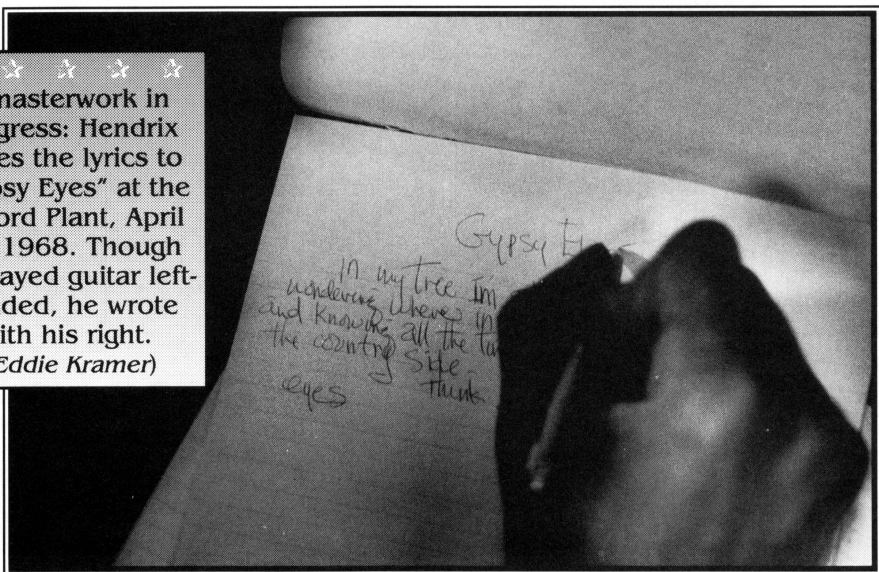 masterwork in
gress: Hendrix
es the lyrics to
sy Eyes" at the
ord Plant, April
1968. Though
ayed guitar left-
ded, he wrote
ith his right.
Eddie Kramer)
Gypsy E
in my tree Im
wondering where in
and knowing all the
the country side
eyes think